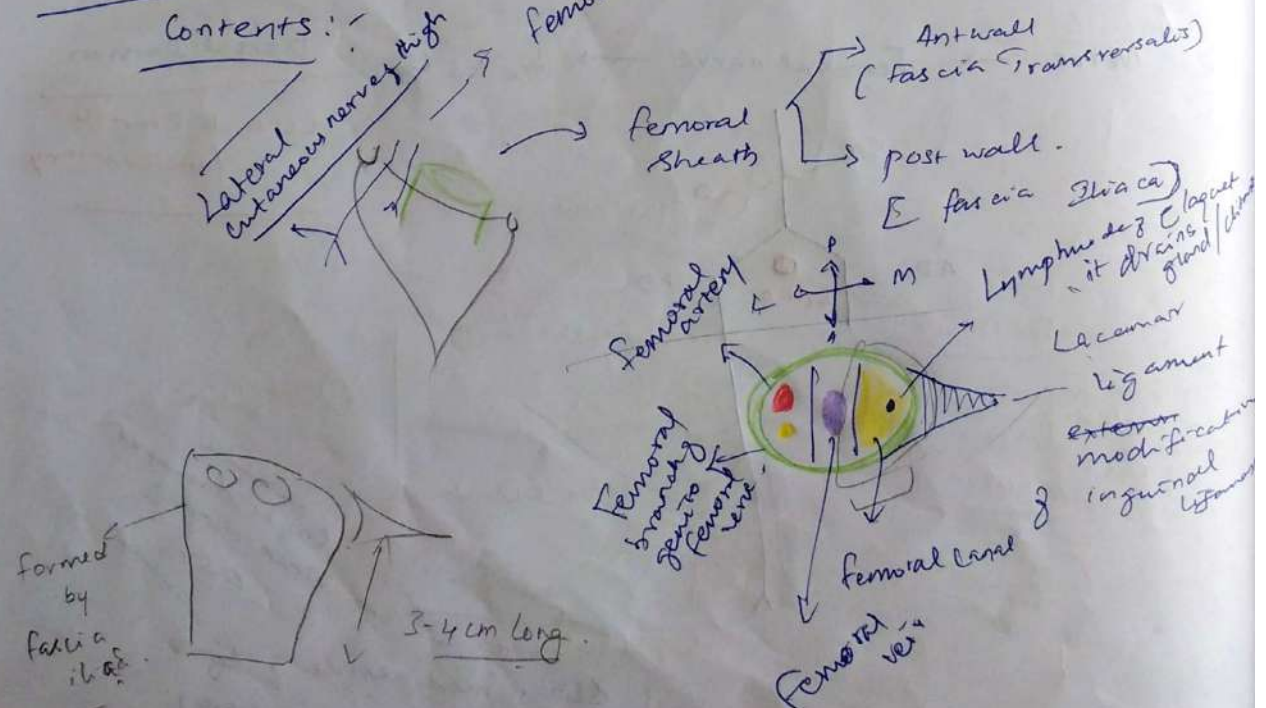 Contents :-
Lateral
cutaneous nerve of thigh
femo
femoral
Sheath
Ant wall
( Fascia Transversalis)
post wall.
[ fascia Iliaca)
P
M
L
Lymphnode of Cloquet
"it drains
gland/
Lacunar
ligament
modificati
of inguinal
ligament
Femoral
artery
Femoral
branch of
genito
femoral
nerve
femoral canal
Femoral
vein
formed
by
fascia
3-4 cm long.